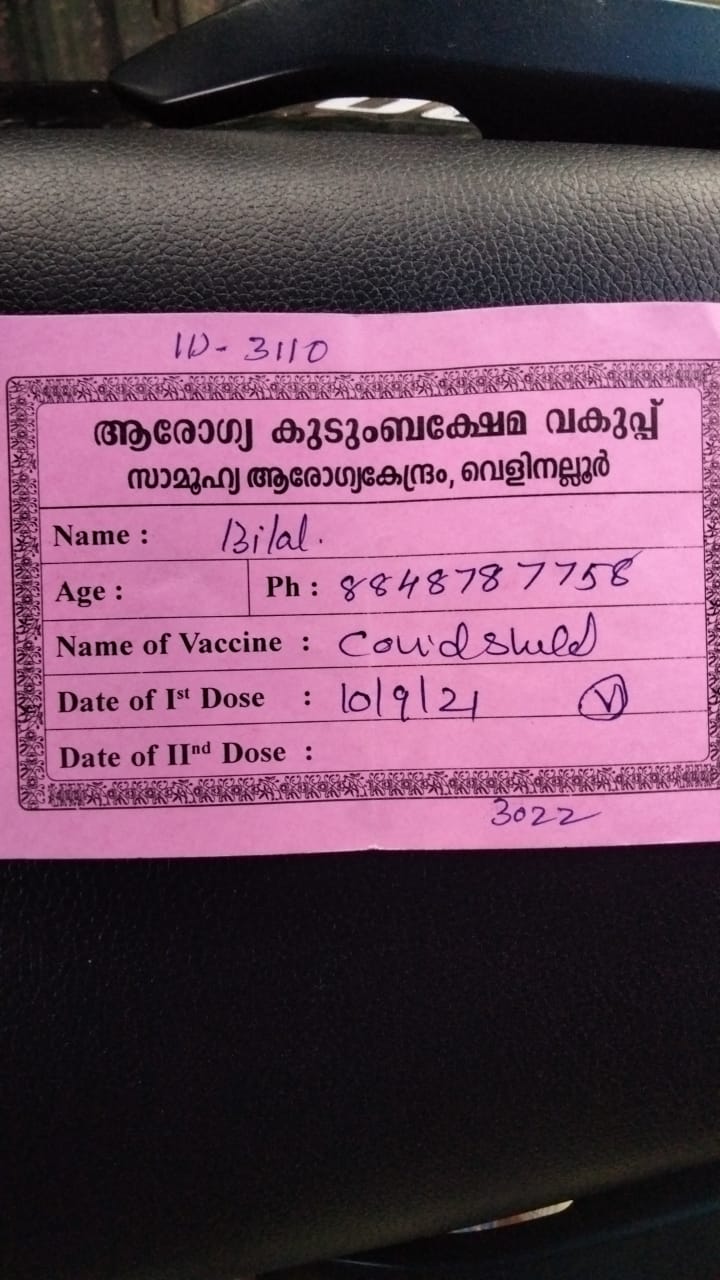 ID - 3110
ആരോഗ്യ കുടുംബക്ഷേമ വകുപ്പ്
സാമൂഹ്യ ആരോഗ്യകേന്ദ്രം, വെളിനല്ലൂർ
Name : Bilal.
Age : Ph : 8848787758
Name of Vaccine : Covidshield
Date of Ist Dose : 10/9/21 V
Date of IInd Dose :
3022